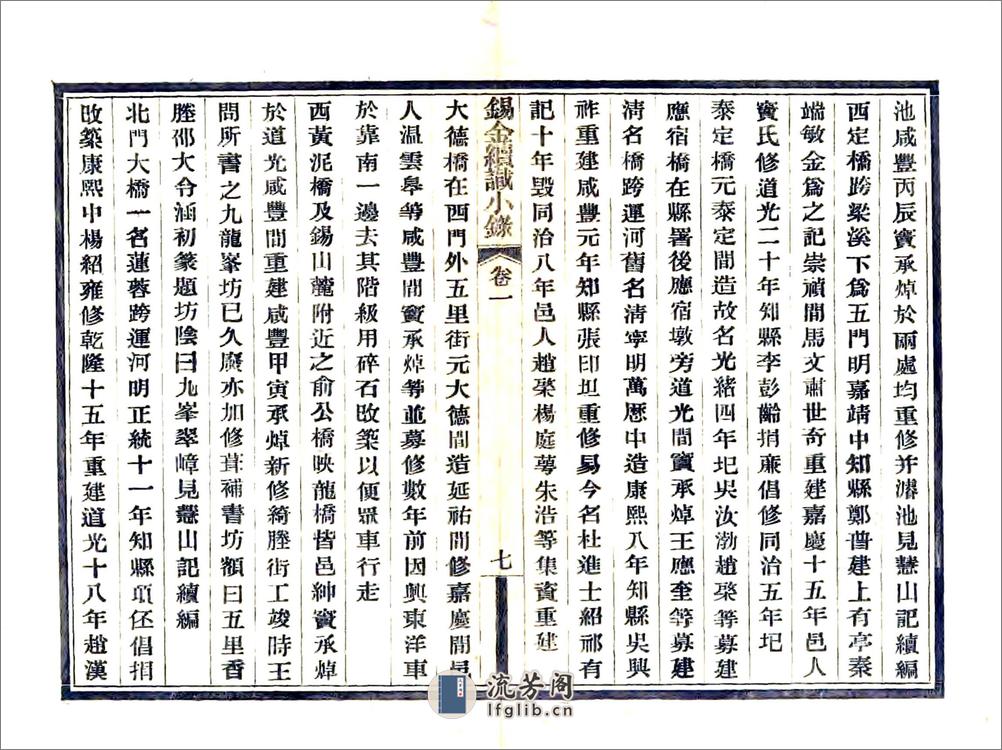 池咸豐丙辰竇承焯於兩處均重修并濬池見慧山記續編
西定橋跨梁溪下爲五門明嘉靖中知縣鄭普建上有亭秦
端敏金爲之記崇禎間馬文肅世奇重建嘉慶十五年邑人
竇氏修道光二十年知縣李彭齡捐廉倡修同治五年圮
泰定橋元泰定間造故名光緒四年圮吳汝渤趙棨等募建
應宿橋在縣署後應宿墩旁道光間竇承焯王應奎等募建
清名橋跨運河舊名清寧明萬歷中造康熙八年知縣吳興
祚重建咸豐元年知縣張印坦重修易今名杜進士紹祁有
記十年毀同治八年邑人趙棨楊庭蕚朱浩等集資重建
錫金續識小錄
卷一
七
大德橋在西門外五里街元大德間造延祐間修嘉慶間邑
人温雲皋等咸豐間竇承焯等並募修數年前因興東洋車
於靠南一邊去其階級用碎石改築以便眾車行走
西黃泥橋及錫山麓附近之俞公橋映龍橋皆邑紳竇承焯
於道光咸豐間重建咸豐甲寅承焯新修綺塍街工竣時王
問所書之九龍峯坊已久廢亦加修葺補書坊額曰五里香
塍邵大令涵初篆題坊陰曰九峯翠嶂見慧山記續編
北門大橋一名蓮蓉跨運河明正統十一年知縣項伾倡捐
改築康熙中楊紹雍修乾隆十五年重建道光十八年趙漢
流芳阁
lfglib.cn